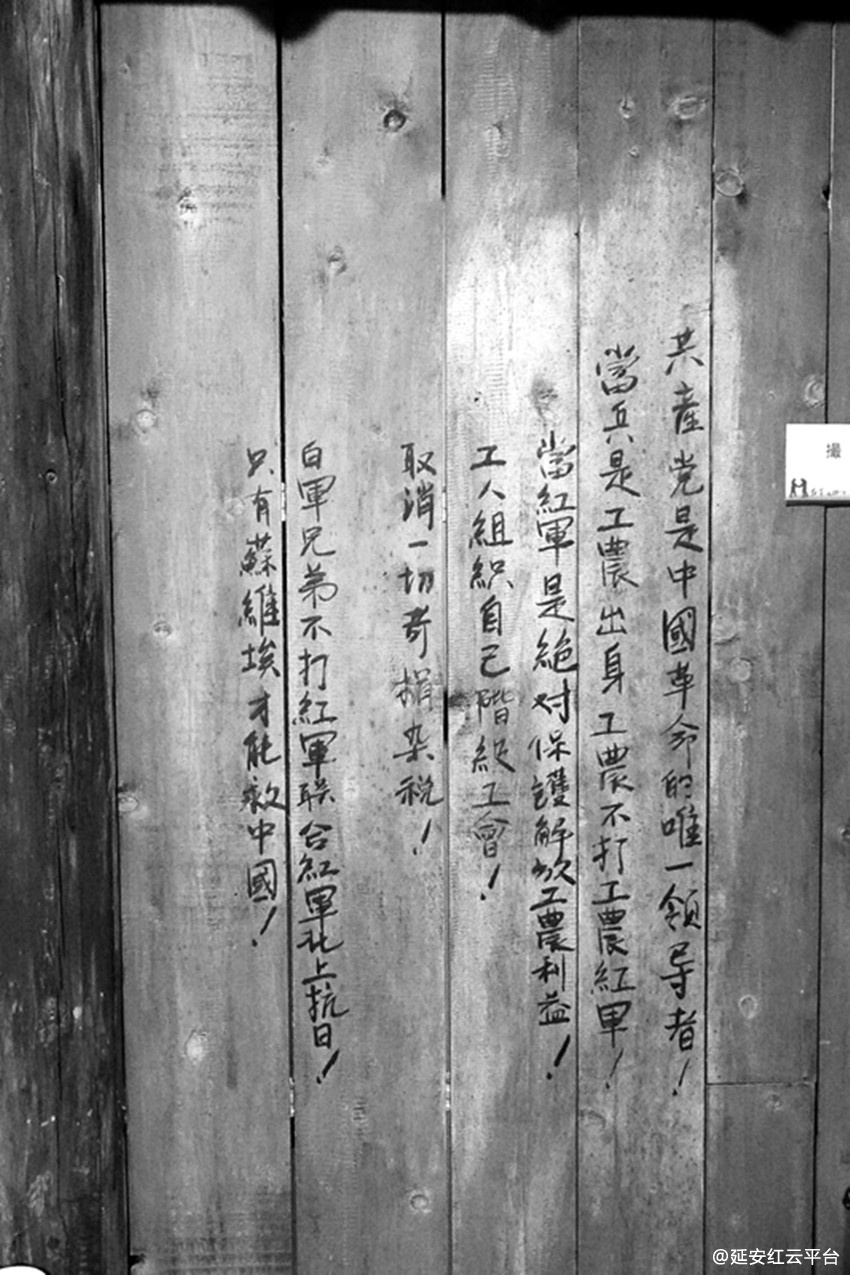 共產党是中國革命的唯一領导者！
當兵是工農出身工農不打工農紅軍！
當紅軍是絕对保護解放工農利益！
工人組織自己階級工會！
取消一切苛捐杂税！
白軍兄弟不打紅軍联合紅軍北上抗日！
只有蘇維埃才能救中國！
撮
@延安红云平台